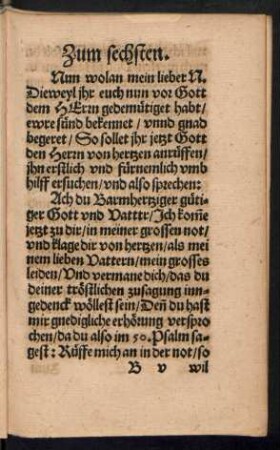 Zum sechsten.
Nun wolan mein lieber N.
Dieweyl jhr euch nun vor Gott
dem HErrn gedemütiget habt/
ewre sünd bekennet / vnnd gnad
begeret / So sollet jhr jetzt Gott
den Herrn von hertzen anrüffen/
jhn erstlich vnd fürnemlich vmb
hilff ersuchen / vnd also sprechen:
Ach du Barmhertziger güti-
ger Gott vnd Vatttr / Ich kom̃e
jetzt zu dir / in meiner grossen not/
vnd klage dir von hertzen / als mei
nem lieben Vattern / mein grosses
leiden / Vnd vermane dich / das du
deiner tröstlichen zusagung inn-
gedenck wöllest sein / Deñ du hast
mir gnedigliche erhörung verspro
chen / da du also im 50. Psalm sa-
gest : Rüffe mich an in der not / so
B v wil